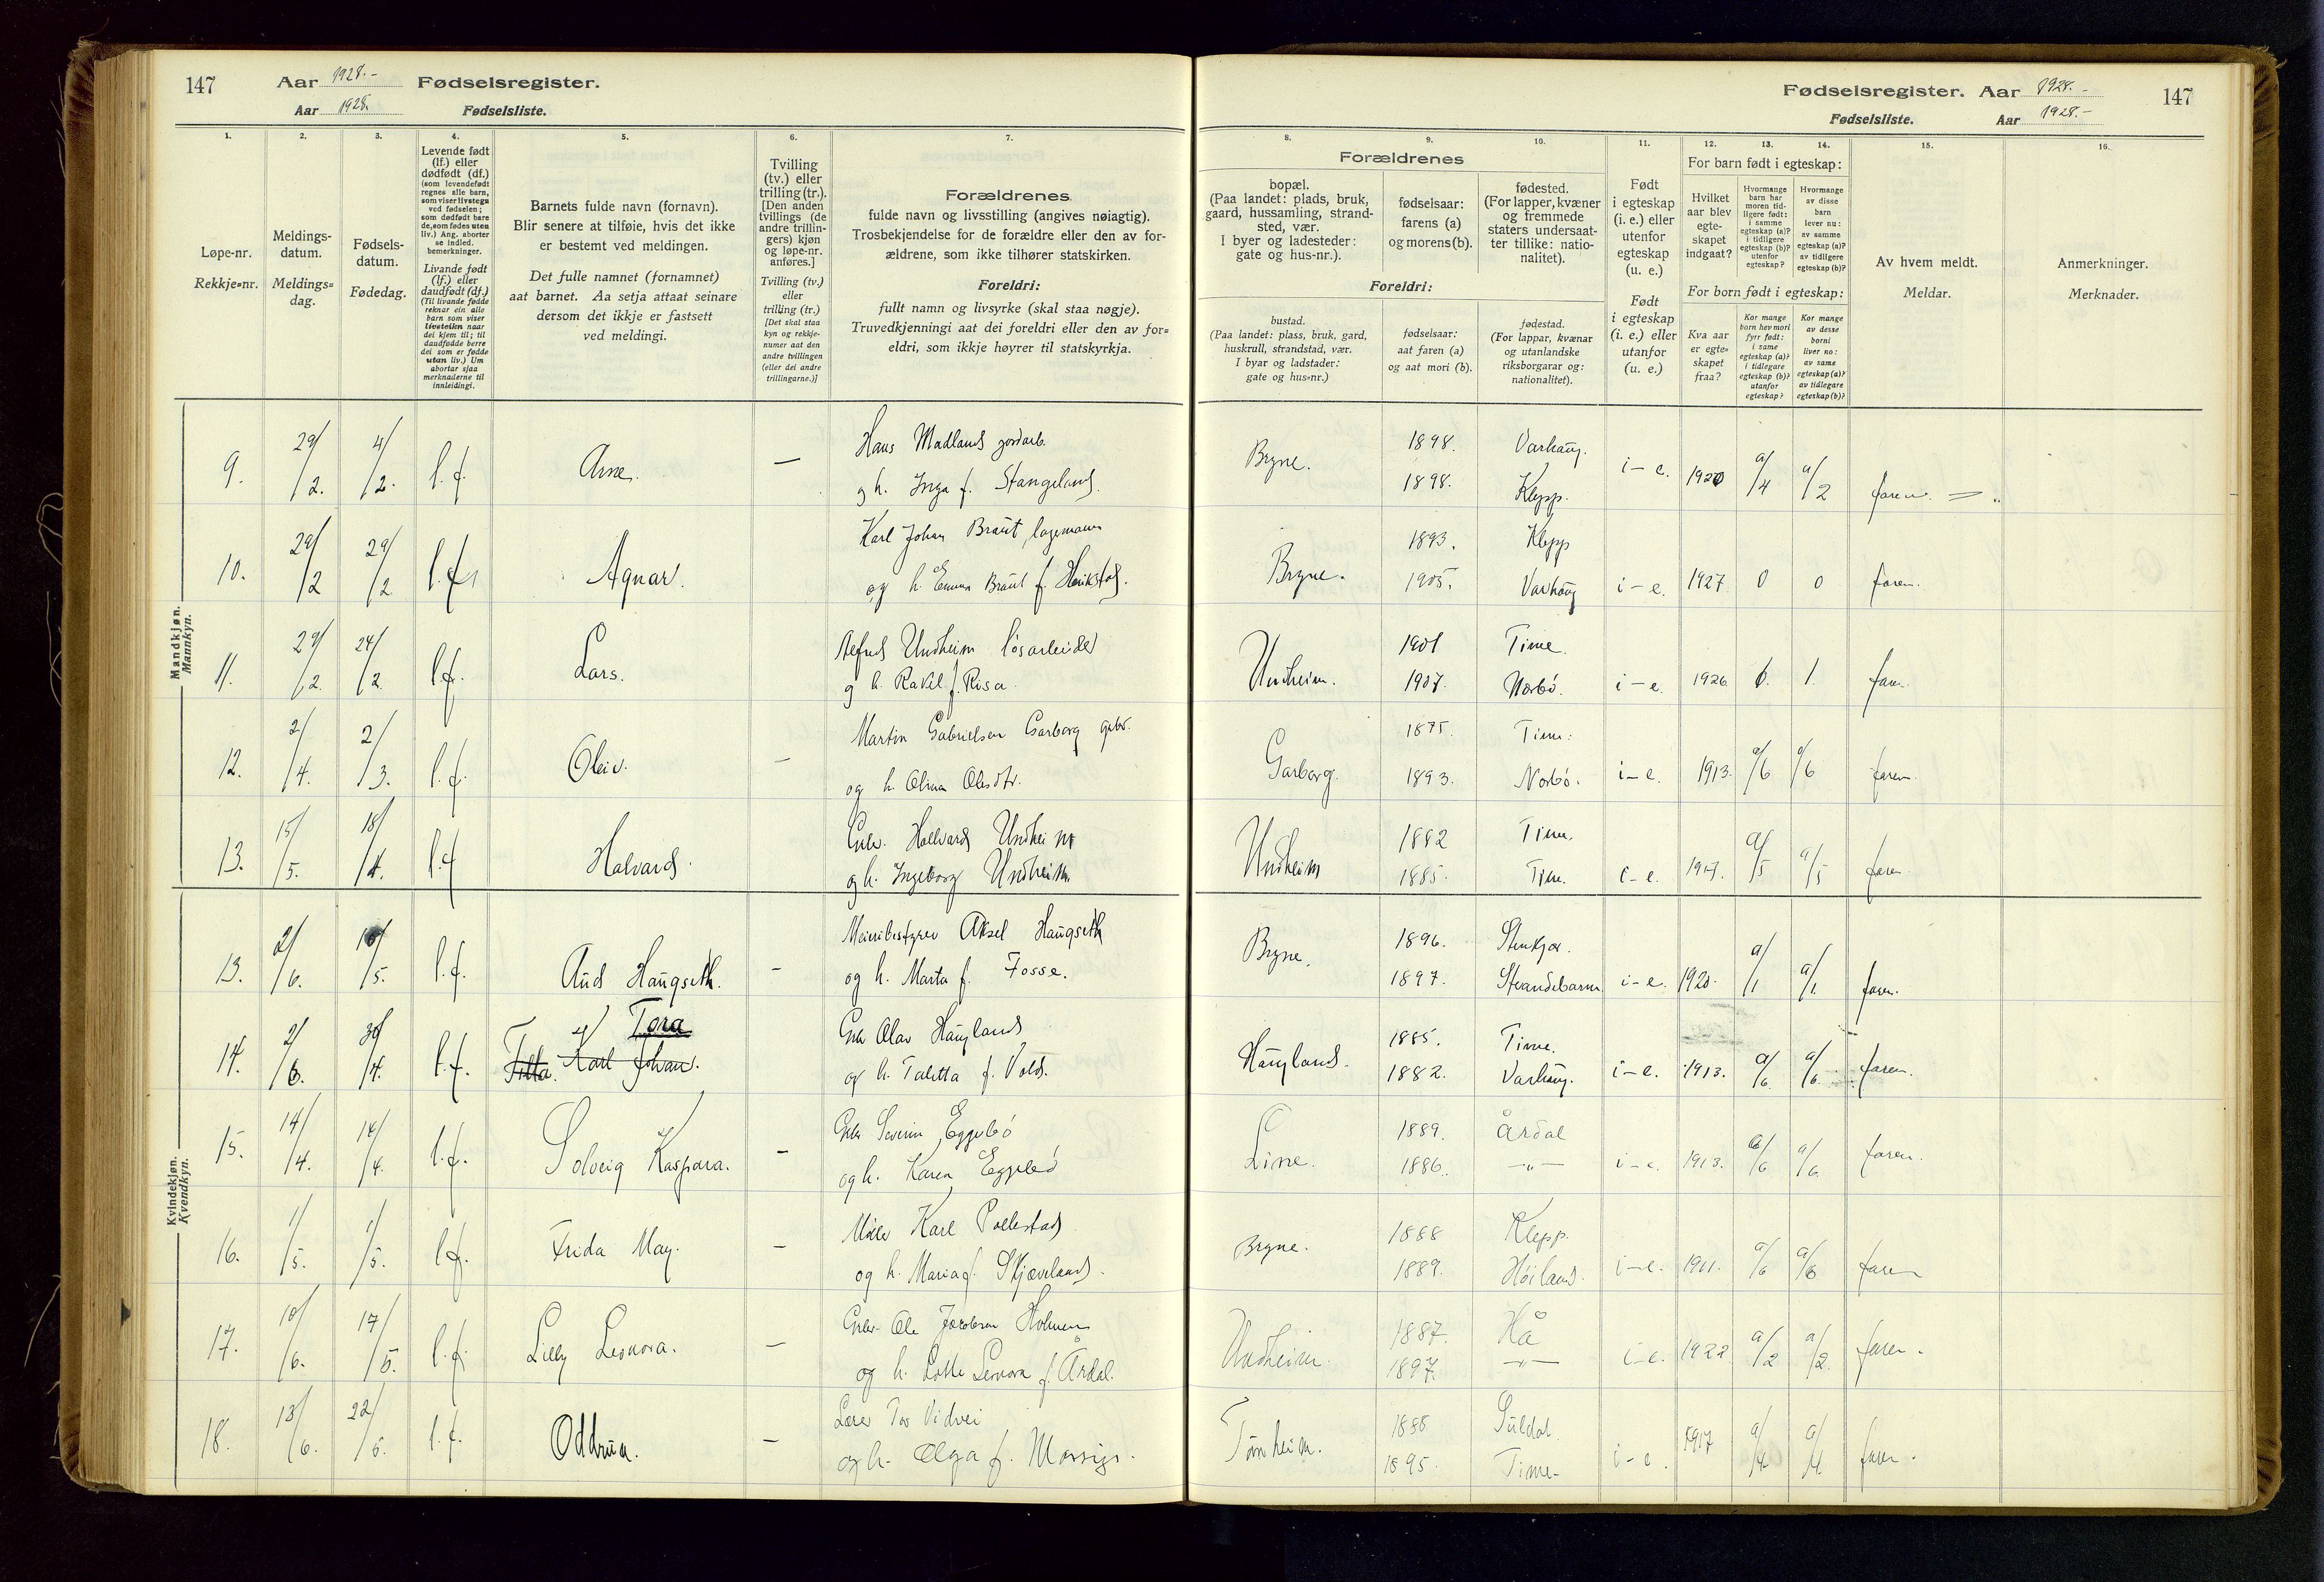 147 Aar 1928.- Fødselsregister.
Aar 1928. Fødselsliste.
Fødselsregister. Aar 1928.- 147
Fødselsliste. Aar 1928.-
1. 2. 3. 4. 5. 6. 7. 8. 9. 10. 11. 12. 13. 14. 15. 16.
Løpe-nr.
Rekkje=nr.
Meldings-
datum.
Meldings=
dag.
Fødsels-
datum.
Fødedag.
Levende født
(lf.) eller
dødfødt (df.)
(som levendefødt
regnes alle barn,
som viser livstegn
ved fødselen;
som dødfødt bare
de, som fødes uten
liv.) Ang. aborter
se indled.
bemerkninger.
Livande født
(lf.) eller
daudfødt (df.)
(Til livande fødde
reknar ein alle
barn som viser
livsteikn naar
dei kjem til; til
daudfødde berre
dei som er fødde
utan liv.) Um
abortar sjaa
merknaderne til
innleidingi.
Barnets fulde navn (fornavn).
Blir senere at tilføie, hvis det ikke
er bestemt ved meldingen.
Det fulle namnet (fornamnet)
aat barnet. Aa setja attaat seinare
dersom det ikkje er fastsett
ved meldingi.
Tvilling
(tv.) eller
trilling (tr.).
[Den anden
tvillings (de
andre trillin-
gers) kjøn
og løpe-nr.
anføres.]
Tvilling (tv.)
eller
trilling (tr.)
[Det skal staa
kyn og rekkje-
numer aat den
andre tvillingen
(eller dei andre
trillingarne.)]
Forældrenes
fulde navn og livsstilling (angives nøiagtig).
Trosbekjendelse for de forældre eller den av for-
ældrene, som ikke tilhører statskirken.
Foreldri:
fullt namn og livsyrke (skal staa nøgje).
Truvedkjenningi aat dei foreldri eller den av for=
eldri, som ikkje høyrer til statskyrkja.
Forældrenes
bopæl.
(Paa landet: plads, bruk,
gaard, hussamling, strand-
sted, vær.
I byer og ladesteder:
gate og hus-nr.).
fødselsaar:
farens (a)
og morens (b).
fødested.
(For lapper, kvæner
og fremmede
staters undersaat-
ter tillike: natio-
nalitet).
Foreldri:
bustad.
(Paa landet: plass, bruk, gard,
huskrull, strandstad, vær.
I byar og ladstader:
gate og hus-nr.)
fødselsaar:
aat faren (a)
og aat mori (b).
fødestad.
(For lappar, kvænar
og utanlandske
riksborgarar og:
nationalitet).
Født
i egteskap
(i. e.) eller
utenfor
egteskap
(u. e.)
Født
i egteskap
(i. e.) eller
utanfor
(u. e.)
For barn født i egteskap:
Hvilket
aar blev
egte-
skapet
indgaat?
Hvormange
barn har
moren tid-
ligere født:
i samme
egteskap (a)?
i tidligere
egteskap (b)?
utenfor
egteskap?
Hvormange
av disse
barn
lever nu:
av samme
egteskap (a)?
av tidligere
egteskap (b)?
For born født i egteskap:
Kva aar
er egte=
skapet
fraa?
Kor mange
born hev mori
fyrr født:
i same
egteskap (a)?
i tidlegare
egteskap (b)?
utanfor
egteskap?
Kor mange
av desse
borni
liver no:
av same
egteskap (a)?
av tidlegare
egteskap (b)?
Av hvem meldt.
Meldar.
Anmerkninger.
Merknader.
Mandkjøn.
Mannkyn.
9. 29/2. 4/2. l.f. Arne. — Hans Madland jordarb. Bryne. 1898. Varhaug. i-e. 1920 a/4 a/2 faren.
og h. Inga f. Stangeland. 1898. Klepp.
10. 29/2 29/2 l.f. Agnar. Karl Johan Braut, lagemann Bryne. 1893. Klepp
og h. Emma Braut f. Herikstad. 1905. Varhaug i-e. 1927. 0 0 faren.
11. 29/2. 24/2. l.f. Lars. Alfred Undheim løsarbeider Undheim. 1901 Time.
og h. Rakel f. Risa. 1907. Nærbø. i-e. 1926 1. faren
12. 2/4. 2/3. l.f. Oleiv. — Martin Gabrielsen Garborg gbr. Garborg. 1875. Time.
og h. Olina Olesdtr. 1893. Nærbø. i-e. 1913. a/6 a/6 faren
13. 15/5. 18/4. l.f. Halvard. Gbr. Hallvard Undheim Undheim 1882 Time.
og h. Ingeborg Undheim. 1885. Time. i-e. a/5 a/5 faren
Kvindekjøn.
Kvendkyn.
13. 2/6. l.f. Aud Haugseth. — Meieribestyrer Aksel Haugseth Bryne. 1896. Stenkjær.
og h. Marta f. Fosse. 1897. Strandebarm i-e. 1920. a/1 a/1. faren.
Tora
14. 2/6. 30/4. l.f. Karl Johan. Gbr Olav Haugland Haugland. 1885. Time.
og h. Taletta f. Vold. 1882. Varhaug. i-e. 1913. a/6 a/6 faren.
15. 14/4. 14/4. l.f. Solveig Kaspara. — Gbr Severin Eggebø Line. 1889. Årdal
og h. Karen Eggebø 1886. —"— i-e. 1913. a/6 a/6 faren.
16. 1/5. 1/5. l.f. Frida May. — Karl Pollestad Bryne. 1888 Klepp.
og h. Maria f. Skjæveland. 1889. Høiland. i-e. 1911. a/6 a/6 faren
17. 10/6. 17/5. l.f. Lilly Leonora. — Gbr. Ole Jacobsen Holmen Undheim. 1887. Hå
og h. Lotte Leonora f. Årdal. 1897. —"— i-e. 1922 a/2 a/2 faren.
18. 13/6. 22/5. l.f. Oddrun. — Lærer Tor Vidvei Tornheim. Suldal.
og h. Olga f. Mossige. 1895. Time. i-e. 1917 a/4 a/4 faren.